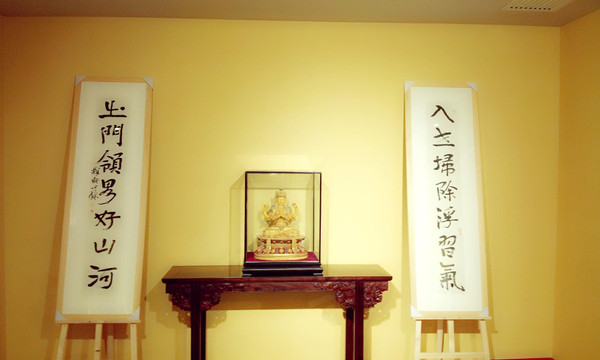 入世掃除浮習氣
出門領畧好山河